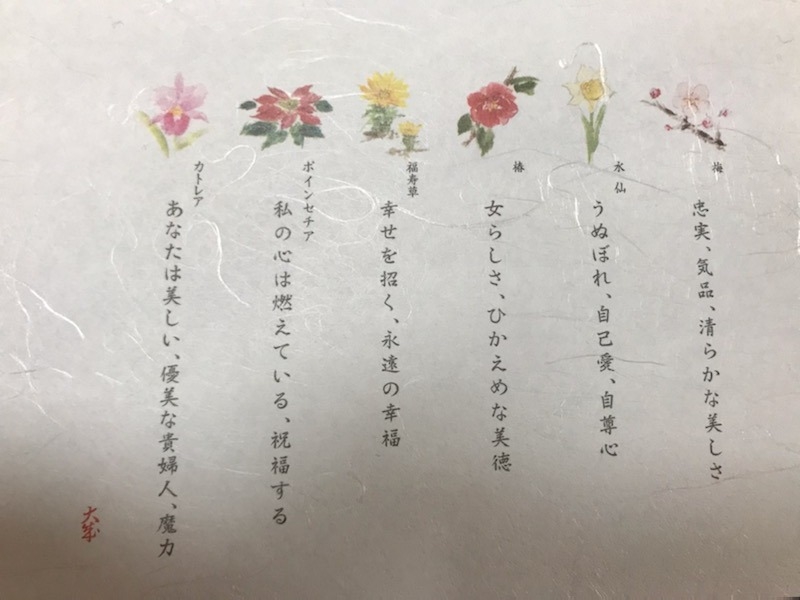 梅
忠実、気品、清らかな美しさ
水仙
うぬぼれ、自己愛、自尊心
椿
女らしさ、ひかえめな美徳
福寿草
幸せを招く、永遠の幸福
ポインセチア
私の心は燃えている、祝福する
カトレア
あなたは美しい、優美な貴婦人、魔力